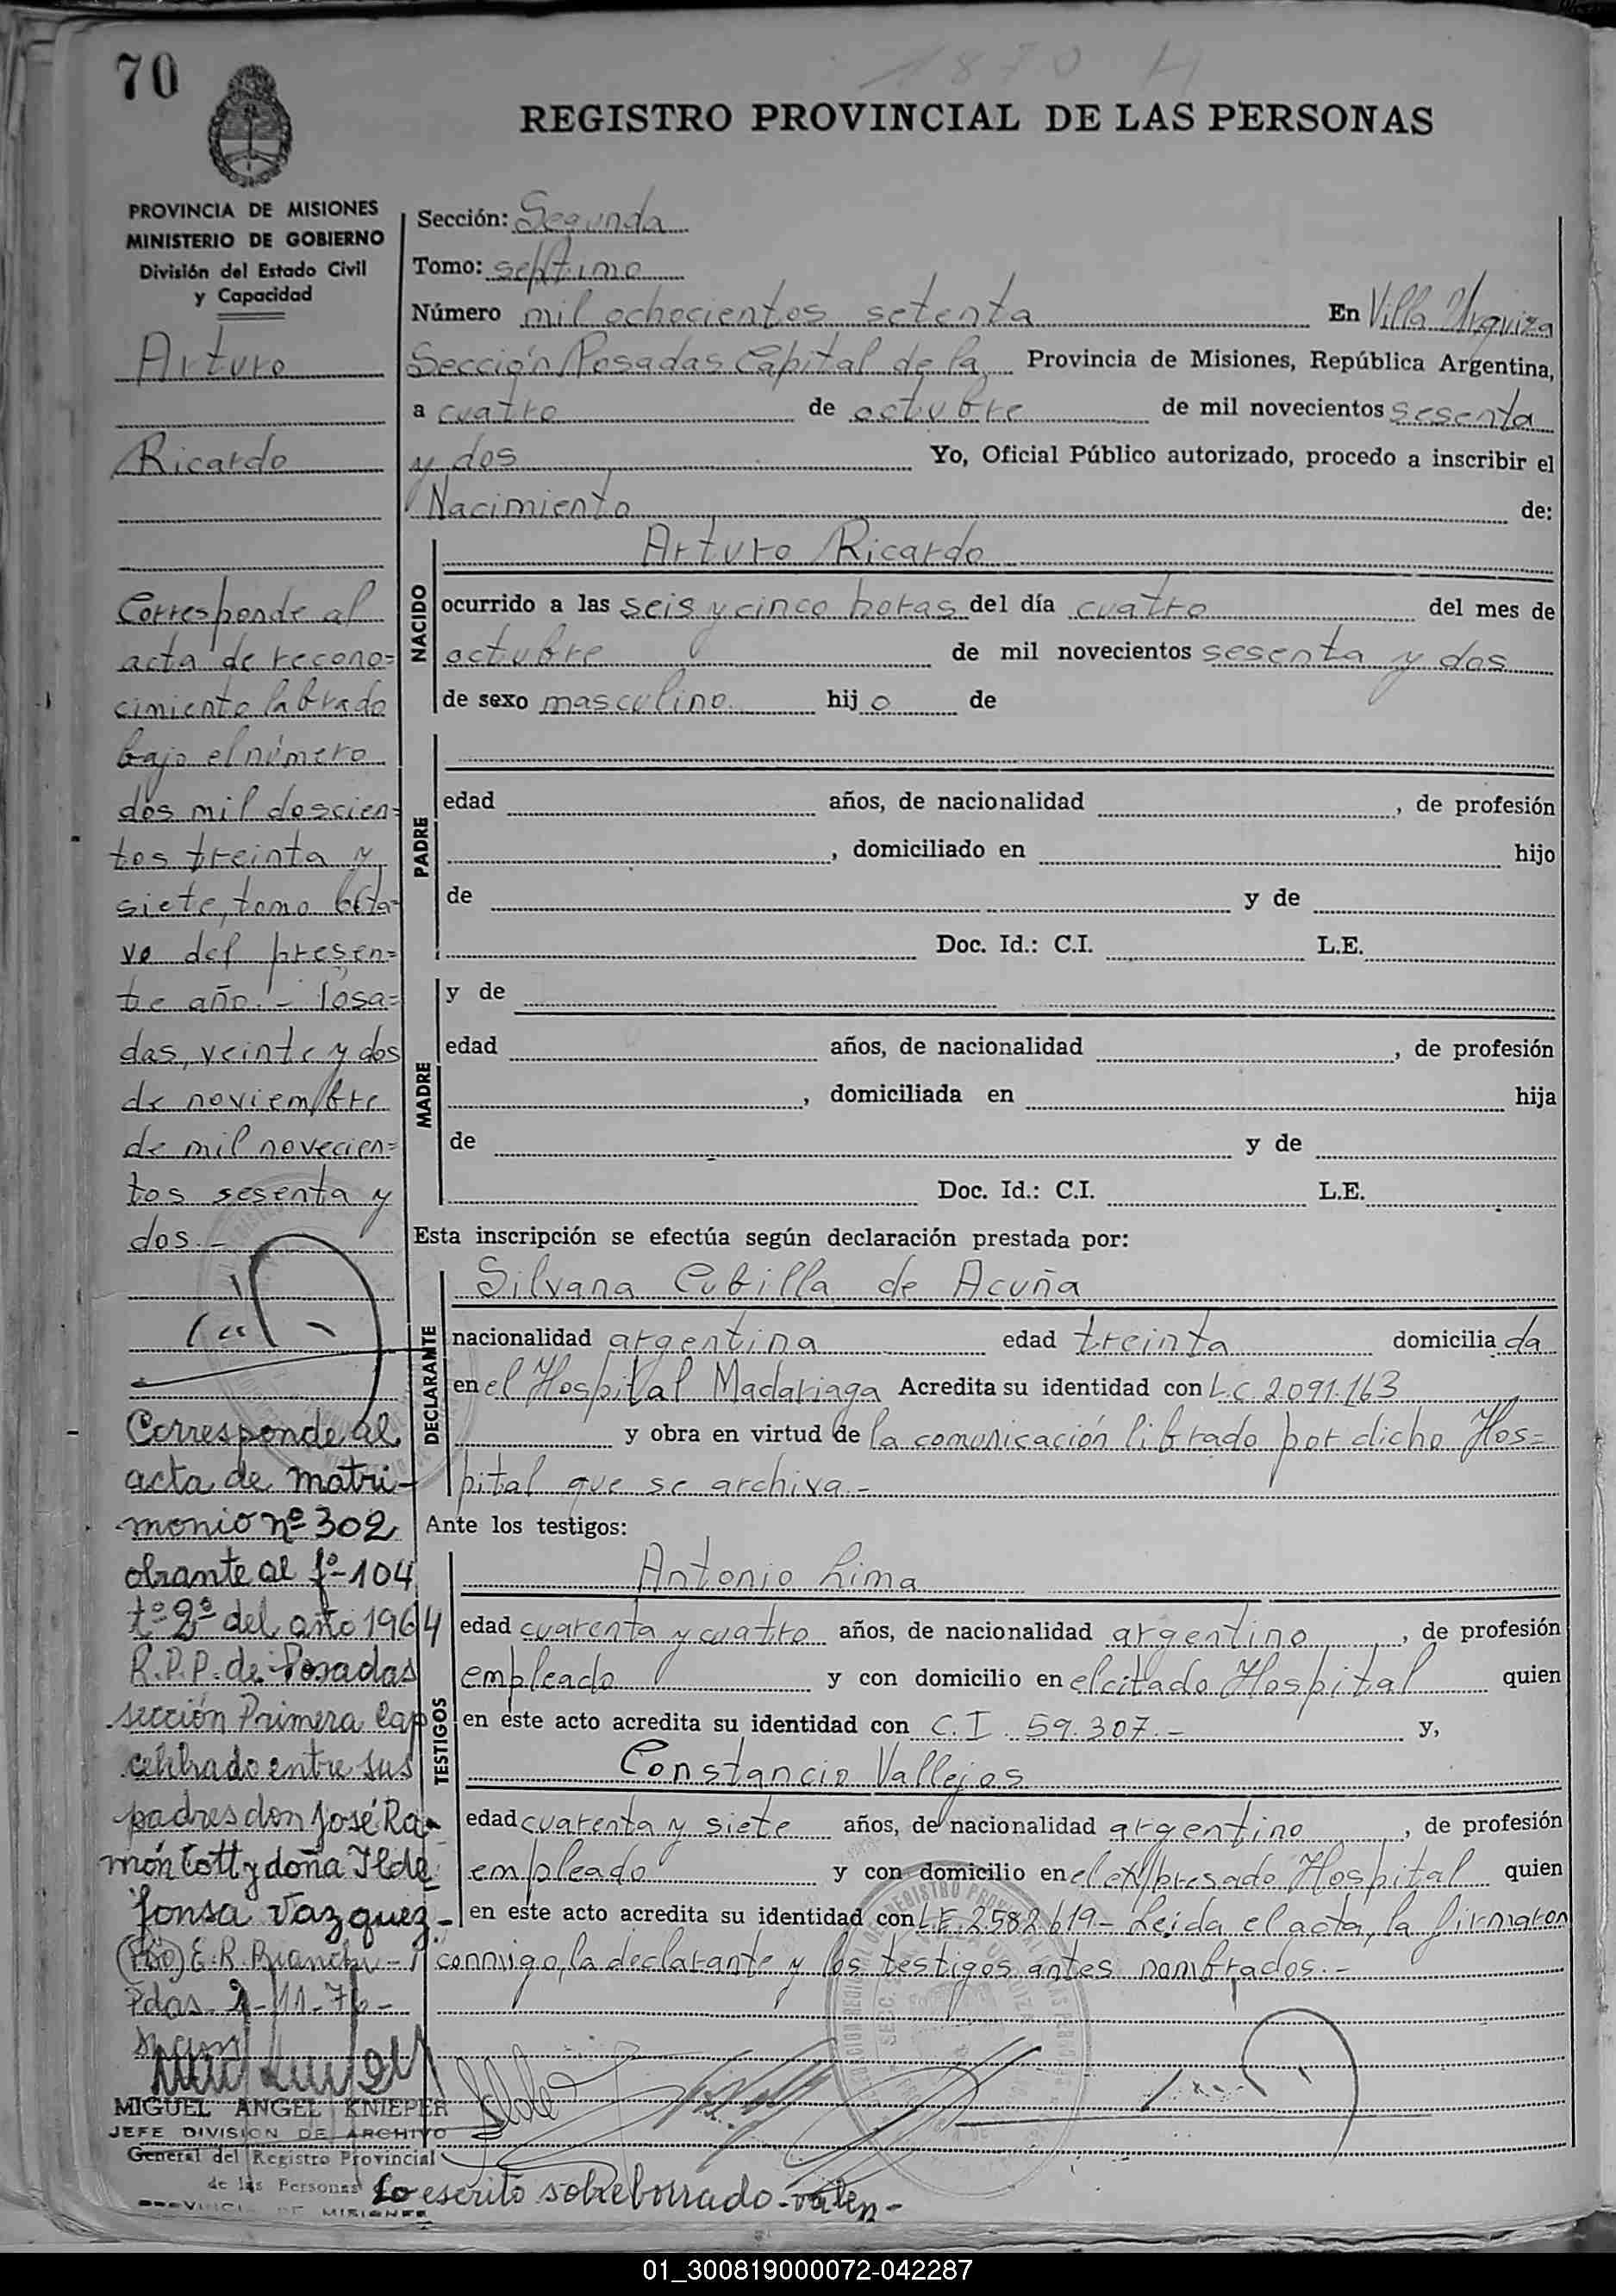 70
1870 H
REGISTRO PROVINCIAL DE LAS PERSONAS
PROVINCIA DE MISIONES
MINISTERIO DE GOBIERNO
División del Estado Civil
y Capacidad
Arturo
Ricardo
Corresponde al
acta de recono=
cimiento labrado
bajo el número
dos mil doscien=
tos treinta y
siete, tomo octa=
vo del presen=
te año.- Posa=
das, veinte y dos
de noviembre
de mil novecien=
tos sesenta y
dos.-
Corresponde al
acta de matri-
monio nº 302
obrante al fº-104
tº 2º del año 1964
R.P.P. de Posadas
sección Primera Cap
celebrado entre sus
padres don José Ra-
món Cott y doña Ilde
fonsa Vazquez.-
(Fdo) E.R. Bianchi -
Pdas. 2-11-76-
MIGUEL ANGEL KNIEPER
JEFE DIVISION DE ARCHIVO
General del Registro Provincial
de las Personas
PROVINCIA DE MISIONES
Sección: Segunda
Tomo: septimo
Número mil ochocientos setenta En Villa Urquiza
Sección Posadas Capital de la Provincia de Misiones, República Argentina,
a cuatro de octubre de mil novecientos sesenta
y dos Yo, Oficial Público autorizado, procedo a inscribir el
Nacimiento de:
NACIDO
Arturo Ricardo
ocurrido a las seis y cinco horas del día cuatro del mes de
octubre de mil novecientos sesenta y dos
de sexo masculino hijo de
PADRE
edad años, de nacionalidad , de profesión
, domiciliado en hijo
de y de
Doc. Id.: C.I. L.E.
MADRE
y de
edad años, de nacionalidad , de profesión
, domiciliada en hija
de y de
Doc. Id.: C.I. L.E.
Esta inscripción se efectúa según declaración prestada por:
DECLARANTE
Silvana Cubilla de Acuña
nacionalidad argentina edad treinta domiciliada
en el Hospital Madariaga Acredita su identidad con L.C. 2.091.163
y obra en virtud de la comunicación librado por dicho Hos=
pital que se archiva.-
Ante los testigos:
TESTIGOS
Antonio Lima
edad cuarenta y cuatro años, de nacionalidad argentino, de profesión
empleado y con domicilio en el citado Hospital quien
en este acto acredita su identidad con C.I. 59.307.- y,
Constancio Vallejos
edad cuarenta y siete años, de nacionalidad argentino, de profesión
empleado y con domicilio en el expresado Hospital quien
en este acto acredita su identidad con L.E. 2582.619- Leida el acta, la firmaron
conmigo, la declarante y los testigos antes nombrados.-
Lo escrito sobreborrado-valen-
01_300819000072-042287